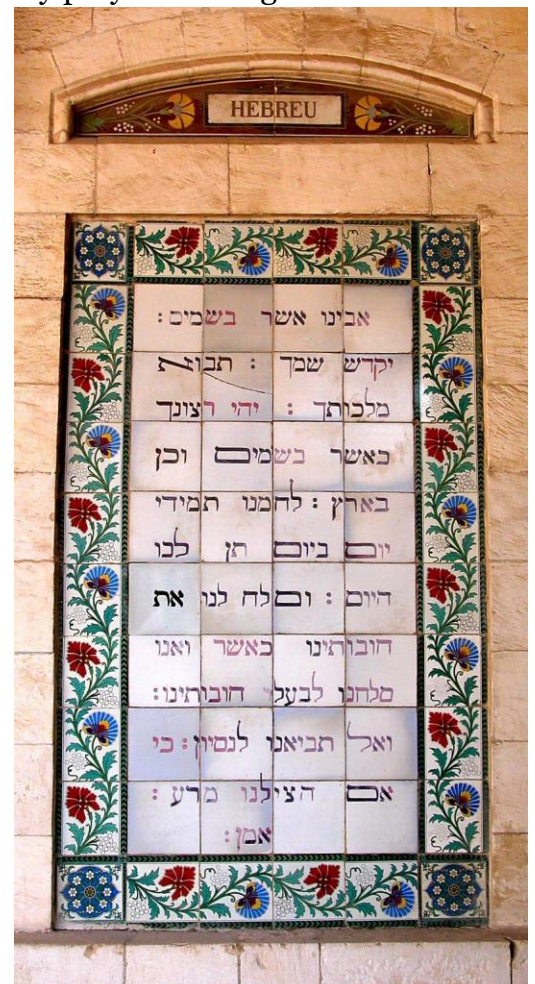 HEBREU
אבינו אשר בשמים :
יקדש שמך : תבוא
מלכותך : יהי רצונך
כאשר בשמים וכן
בארץ : לחמנו תמידי
יום ביום תן לנו
היום : וסלח לנו את
חובותינו כאשר ואנו
סלחנו לבעלי חובותינו:
ואל תביאנו לנסיון: כי
אם הצילנו מרע :
אמן: